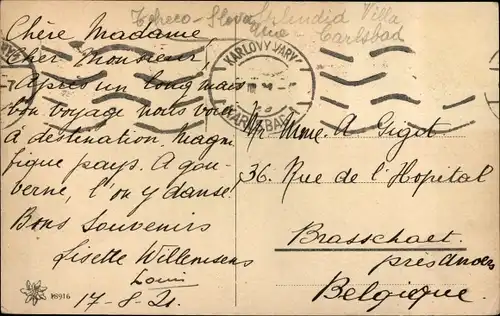 Tcheco-Slova
quie
Splendid Villa
Carlsbad
Chère Madame
Cher Monsieur,
Après un long mais
bon voyage nous voilà
à destination. Magni
fique pays. A gou-
verne, l'on y danse.
Bons Souvenirs
Lisette Willemsens
Louis
17-8-21.
M8916
KARLOVY VARY
KARLSBAD
Mr. Mme. A Gigot
36. Rue de l'Hopital
Brasschaet.
près Anvers
Belgique.